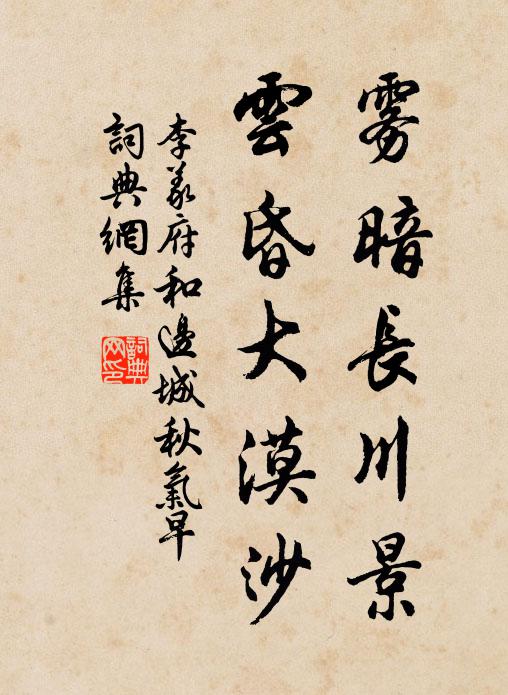 雾暗長川景
雲昏大漠沙
李义府和邊城秋氣早
詞典網集
詞典網印